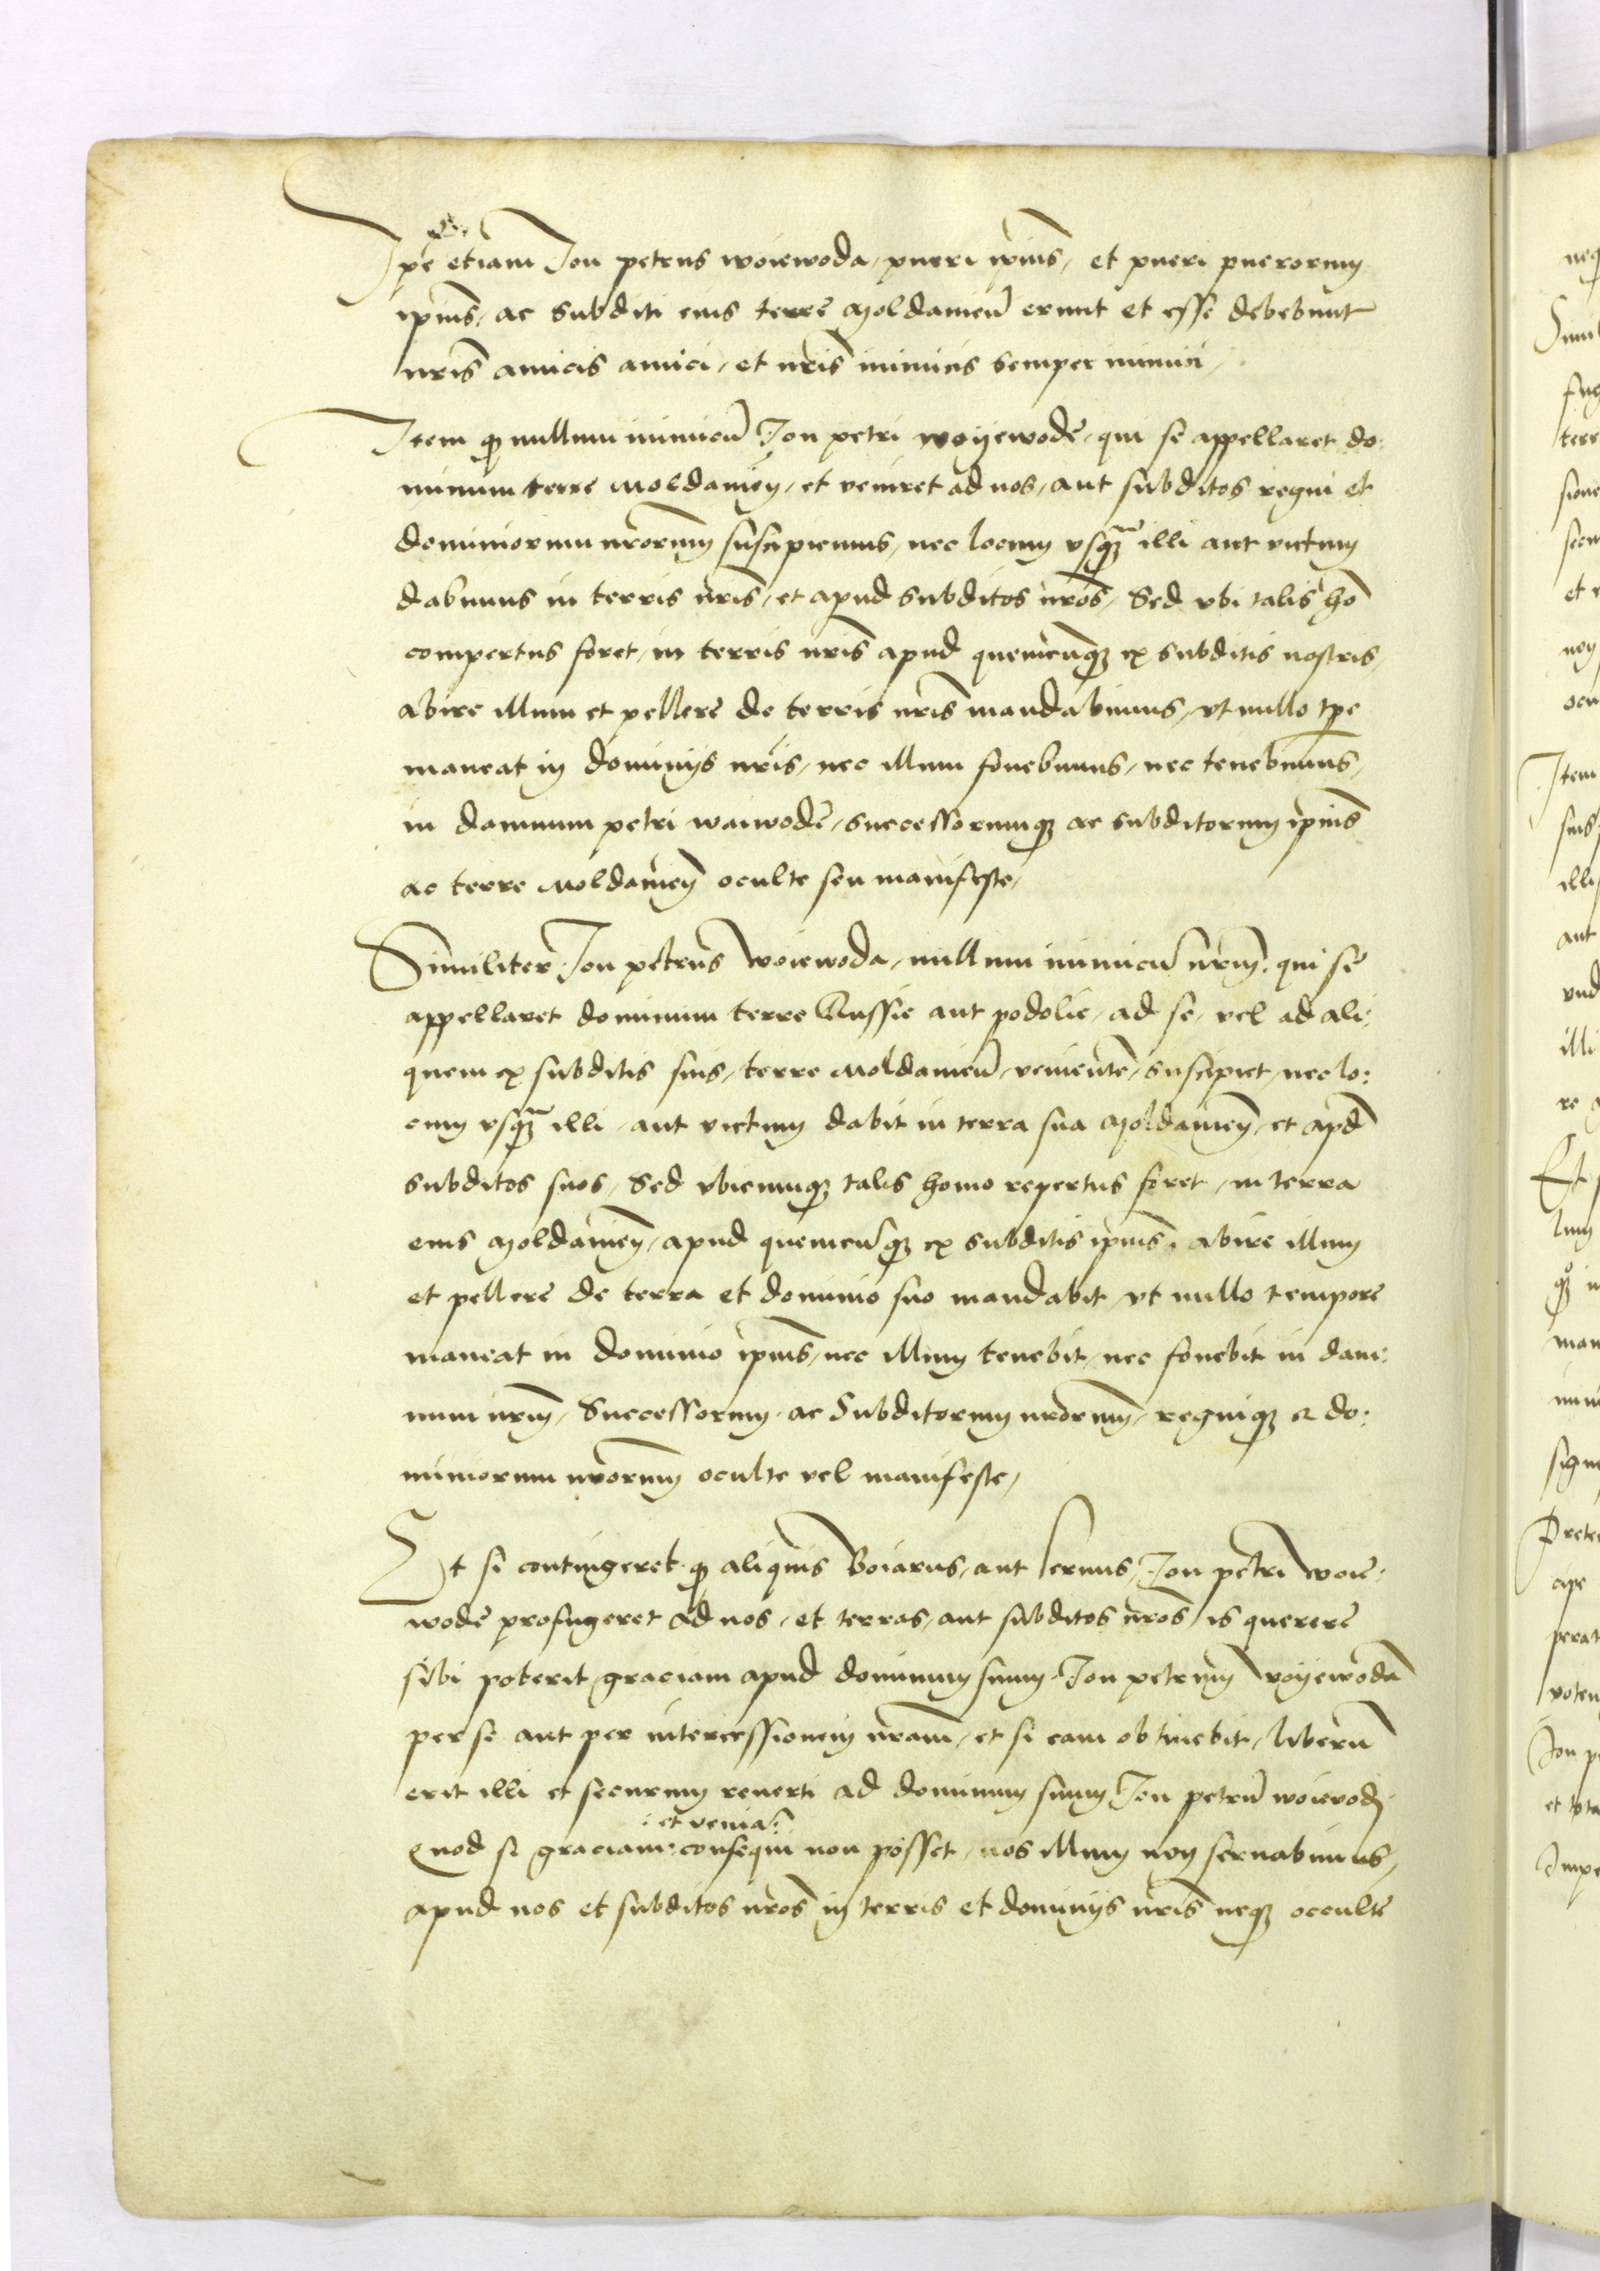 Ipe etiam Jon petrus woiewoda, pueri ipius, et pueri puerorum
ipius, ac subditi eius terre Moldamen erunt et esse debebunt
nris amicis amici, et nris inimicis semper inimici,
Item q nullum inimicu Jon petri woyewode, qui se appellaret do:
minum terre Moldamen, et veniret ad nos, aut subditos regni et
dominiorum nrorum suscipiemus, nec locum vsq illi aut victum
dabimus in terris nris, et apud subditos nros, Sed vbi talis ho
compertus foret, in terris nris apud quemcunq ex subditis nostris,
abire illum et pellere de terris nris mandabimus, vt nullo tpe
maneat in dominijs nris, nec illum fouebimus, nec tenebimus,
in damnum petri waiwode, successorumq ac subditorum ipius
ac terre Moldamen oculte seu manifeste,
Similiter Jon petrus woiewoda, nullum inimicu nrum, qui se
appellaret dominum terre Russie aut podolie, ad se, vel ad ali:
quem ex subditis suis, terre Moldamen, veniente, suscipiet, nec lo:
cum vsq illi, aut victum dabit in terra sua Moldamen, et apd
subditos suos, Sed vbicumq talis homo repertus foret, in terra
eius Moldamen, apud quemcuq ex subditis ipius, abire illum
et pellere de terra et dominio suo mandabit, vt nullo tempore
maneat in dominio ipius, nec illum tenebit, nec fouebit in dam:
num nrum, Successorum, ac Subditorum nrorum, regniq et do:
miniorum nrorum oculte vel manifeste,
Et si contingeret q aliquis Boiarus, aut seruus, Jon petri woie:
wode profugeret ad nos, et terras, aut subditos nros, is querere
sibi poterit graciam apud dominum suum Jon petrum woyewoda
per se aut per intercessionem nram, et si eam obtinebit, liberu
erit illi et securum reuerti ad dominum suum Jon petru woiewod,
: et venia :
Quod si graciam consequi non posset, nos illum non seruabimus,
apud nos et subditos nros in terris et dominijs nris neq occulte